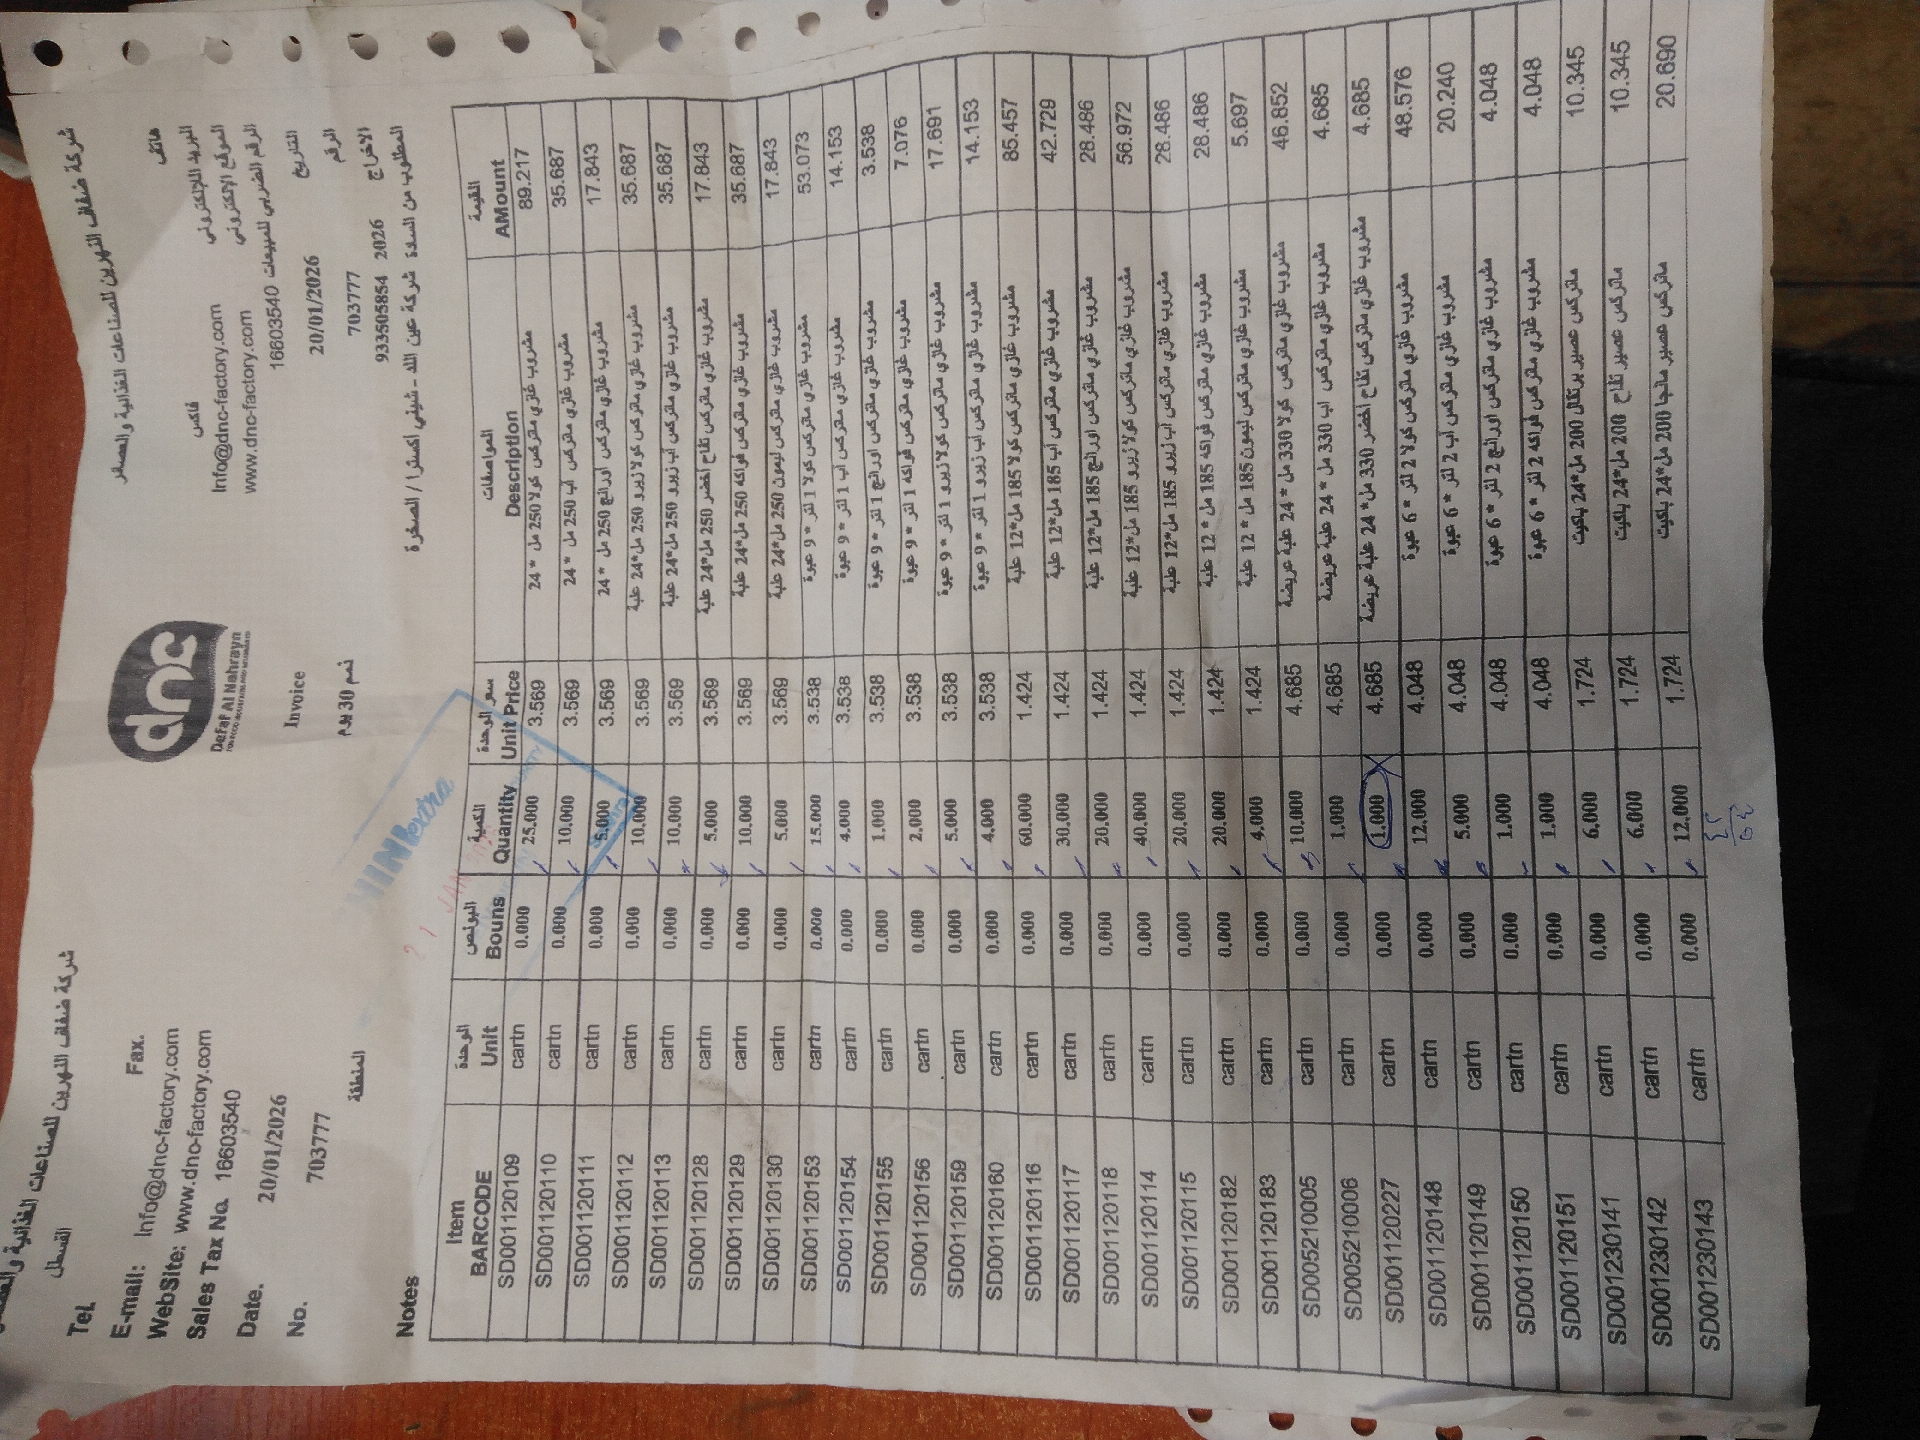 شركة ضفاف النهرين للصناعات الغذائية والعصائر
شركة ضفاف النهرين للصناعات الغذائية والعصائر
القسطل
Tel.
هاتف
Fax.
فاكس
dnc
Defaf Al Nahrayn
E-mail: Info@dnc-factory.com
Info@dnc-factory.com البريد الالكتروني
WebSite: www.dnc-factory.com
www.dnc-factory.com الموقع الإلكتروني
Sales Tax No. 16603540
16603540 الرقم الضريبي للمبيعات
Date. 20/01/2026
Invoice
20/01/2026 التاريخ
No. 703777
ذمم 30 يوم
703777 الرقم
المنطقة
933505854 2026 الاخراج
Notes
المطلوب من السادة شركة عين الله - شيني اكسترا / الصخرة
Item BARCODE | الوحدة Unit | البونص Bouns | الكمية Quantity | سعر الوحدة Unit Price | المواصفات Description | القيمة AMount
SD001120109 cartn 0.000 25.000 3.569 مشروب غازي ماتركس كولا 250 مل * 24 89.217
SD001120110 cartn 0.000 10.000 3.569 مشروب غازي ماتركس أب 250 مل * 24 35.687
SD001120111 cartn 0.000 5.000 3.569 مشروب غازي ماتركس اورانج 250 مل * 24 17.843
SD001120112 cartn 0.000 10.000 3.569 مشروب غازي ماتركس كولا زيرو 250 مل*24 علبة 35.687
SD001120113 cartn 0.000 10.000 3.569 مشروب غازي ماتركس أب زيرو 250 مل*24 علبة 35.687
SD001120128 cartn 0.000 5.000 3.569 مشروب غازي ماتركس تفاح اخضر 250 مل*24 علبة 17.843
SD001120129 cartn 0.000 10.000 3.569 مشروب غازي ماتركس فواكه 250 مل*24 علبة 35.687
SD001120130 cartn 0.000 5.000 3.569 مشروب غازي ماتركس ليمون 250 مل*24 علبة 17.843
SD001120153 cartn 0.000 15.000 3.538 مشروب غازي ماتركس كولا 1 لتر * 9 عبوة 53.073
SD001120154 cartn 0.000 4.000 3.538 مشروب غازي ماتركس اب 1 لتر * 9 عبوة 14.153
SD001120155 cartn 0.000 1.000 3.538 مشروب غازي ماتركس اورانج 1 لتر * 9 عبوة 3.538
SD001120156 cartn 0.000 2.000 3.538 مشروب غازي ماتركس فواكه 1 لتر * 9 عبوة 7.076
SD001120159 cartn 0.000 5.000 3.538 مشروب غازي ماتركس كولا زيرو 1 لتر * 9 عبوة 17.691
SD001120160 cartn 0.000 4.000 3.538 مشروب غازي ماتركس اب زيرو 1 لتر * 9 عبوة 14.153
SD001120116 cartn 0.000 60.000 1.424 مشروب غازي ماتركس كولا 185 مل*12 علبة 85.457
SD001120117 cartn 0.000 30.000 1.424 مشروب غازي ماتركس أب 185 مل*12 علبة 42.729
SD001120118 cartn 0.000 20.000 1.424 مشروب غازي ماتركس اورانج 185 مل*12 علبة 28.486
SD001120114 cartn 0.000 40.000 1.424 مشروب غازي ماتركس كولا زيرو 185 مل*12 علبة 56.972
SD001120115 cartn 0.000 20.000 1.424 مشروب غازي ماتركس أب زيرو 185 مل*12 علبة 28.486
SD001120182 cartn 0.000 20.000 1.424 مشروب غازي ماتركس فواكه 185 مل * 12 علبة 28.486
SD001120183 cartn 0.000 4.000 1.424 مشروب غازي ماتركس ليمون 185 مل * 12 علبة 5.697
SD005210005 cartn 0.000 10.000 4.685 مشروب غازي ماتركس كولا 330 مل * 24 علبة عريضة 46.852
SD005210006 cartn 0.000 1.000 4.685 مشروب غازي ماتركس اب 330 مل * 24 علبة عريضة 4.685
SD001120227 cartn 0.000 1.000 4.685 مشروب غازي ماتركس تفاح اخضر 330 مل * 24 علبة عريضة 4.685
SD001120148 cartn 0.000 12.000 4.048 مشروب غازي ماتركس كولا 2 لتر * 6 عبوة 48.576
SD001120149 cartn 0.000 5.000 4.048 مشروب غازي ماتركس اب 2 لتر * 6 عبوة 20.240
SD001120150 cartn 0.000 1.000 4.048 مشروب غازي ماتركس اورانج 2 لتر * 6 عبوة 4.048
SD001120151 cartn 0.000 1.000 4.048 مشروب غازي ماتركس فواكه 2 لتر * 6 عبوة 4.048
SD001230141 cartn 0.000 6.000 1.724 ماتركس عصير برتقال 200 مل*24 باكيت 10.345
SD001230142 cartn 0.000 6.000 1.724 ماتركس عصير تفاح 200 مل*24 باكيت 10.345
SD001230143 cartn 0.000 12.000 1.724 ماتركس عصير مانجا 200 مل*24 باكيت 20.690